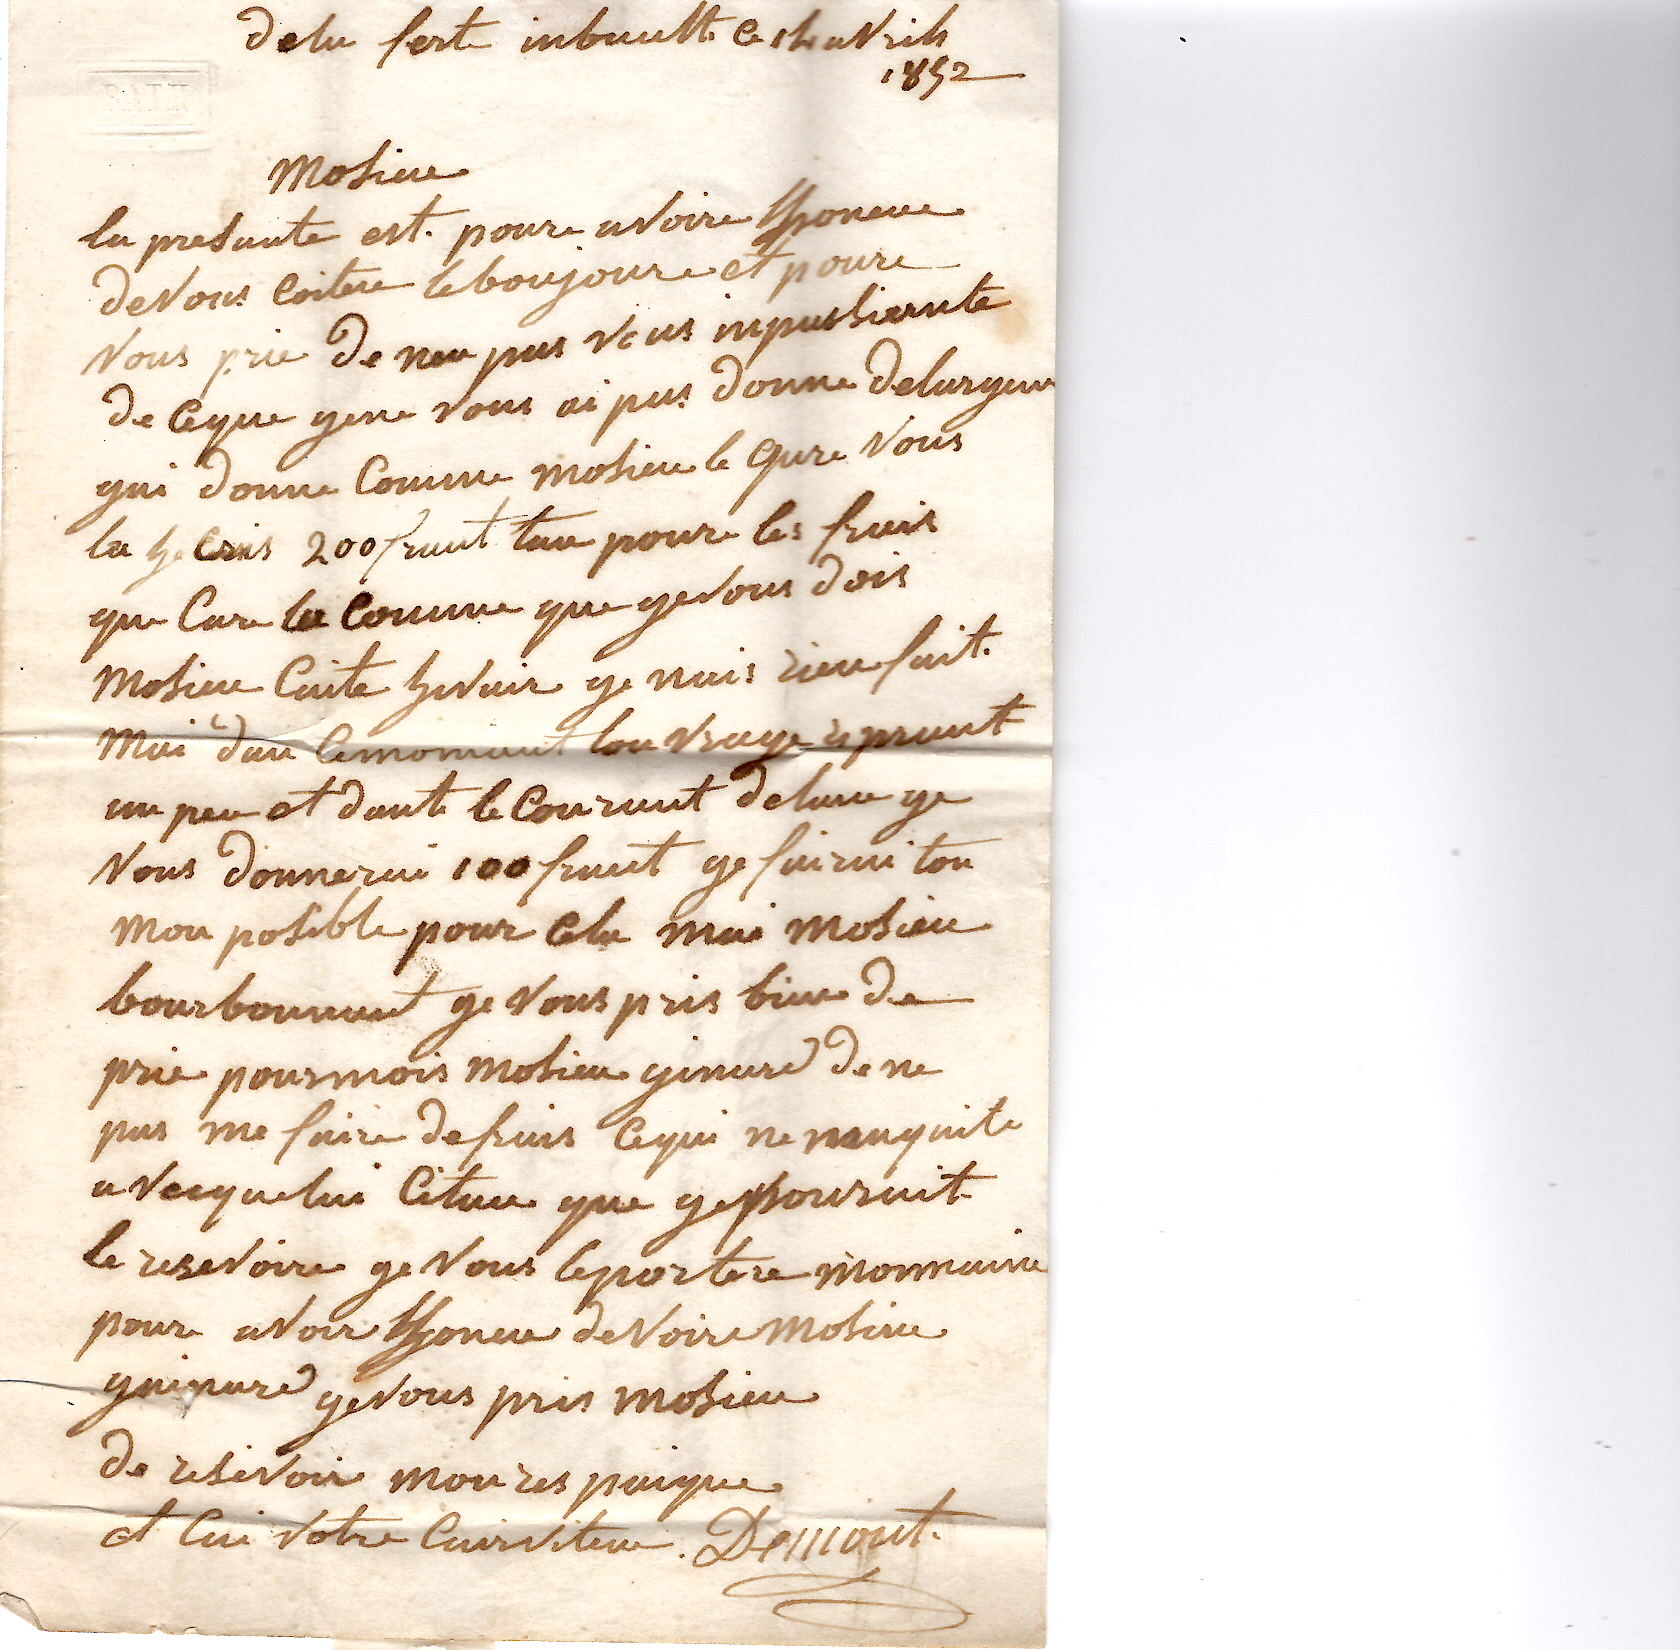 dela ferte inbault ce 14 avrih
1852
BATH
Mosieu
la presante est poure avoire lhoneue
de vous coitere le boujoure et poure
vous prie de neu pas vous inpashiante
de ceque gene vous ai pas donne delargean
qui donne comme mosieu le qure vous
la hecris 200 frant tan poure les frais
que cure la comme que gevous dois
mosieu caite hivair ge nais rieu fait
mai dan cemomant louvrage reprant
un peu et dante le courant delane ge
vous donnerai 100 frant ge fairai tou
mon posible pour cela mai mosieu
bourbonnant ge vous pris bieu de
prie pourmois mosieu ginard de ne
pas me faire defrais cequi ne nauquite
avecquelui citau que gepourrait
le resevoire ge vous leportere monmaime
poure avoir lhoneue devoire mosieu
guinard gevous pris mosieu
de resevoir mou respaique
et cui votre cuirviteue. Demont